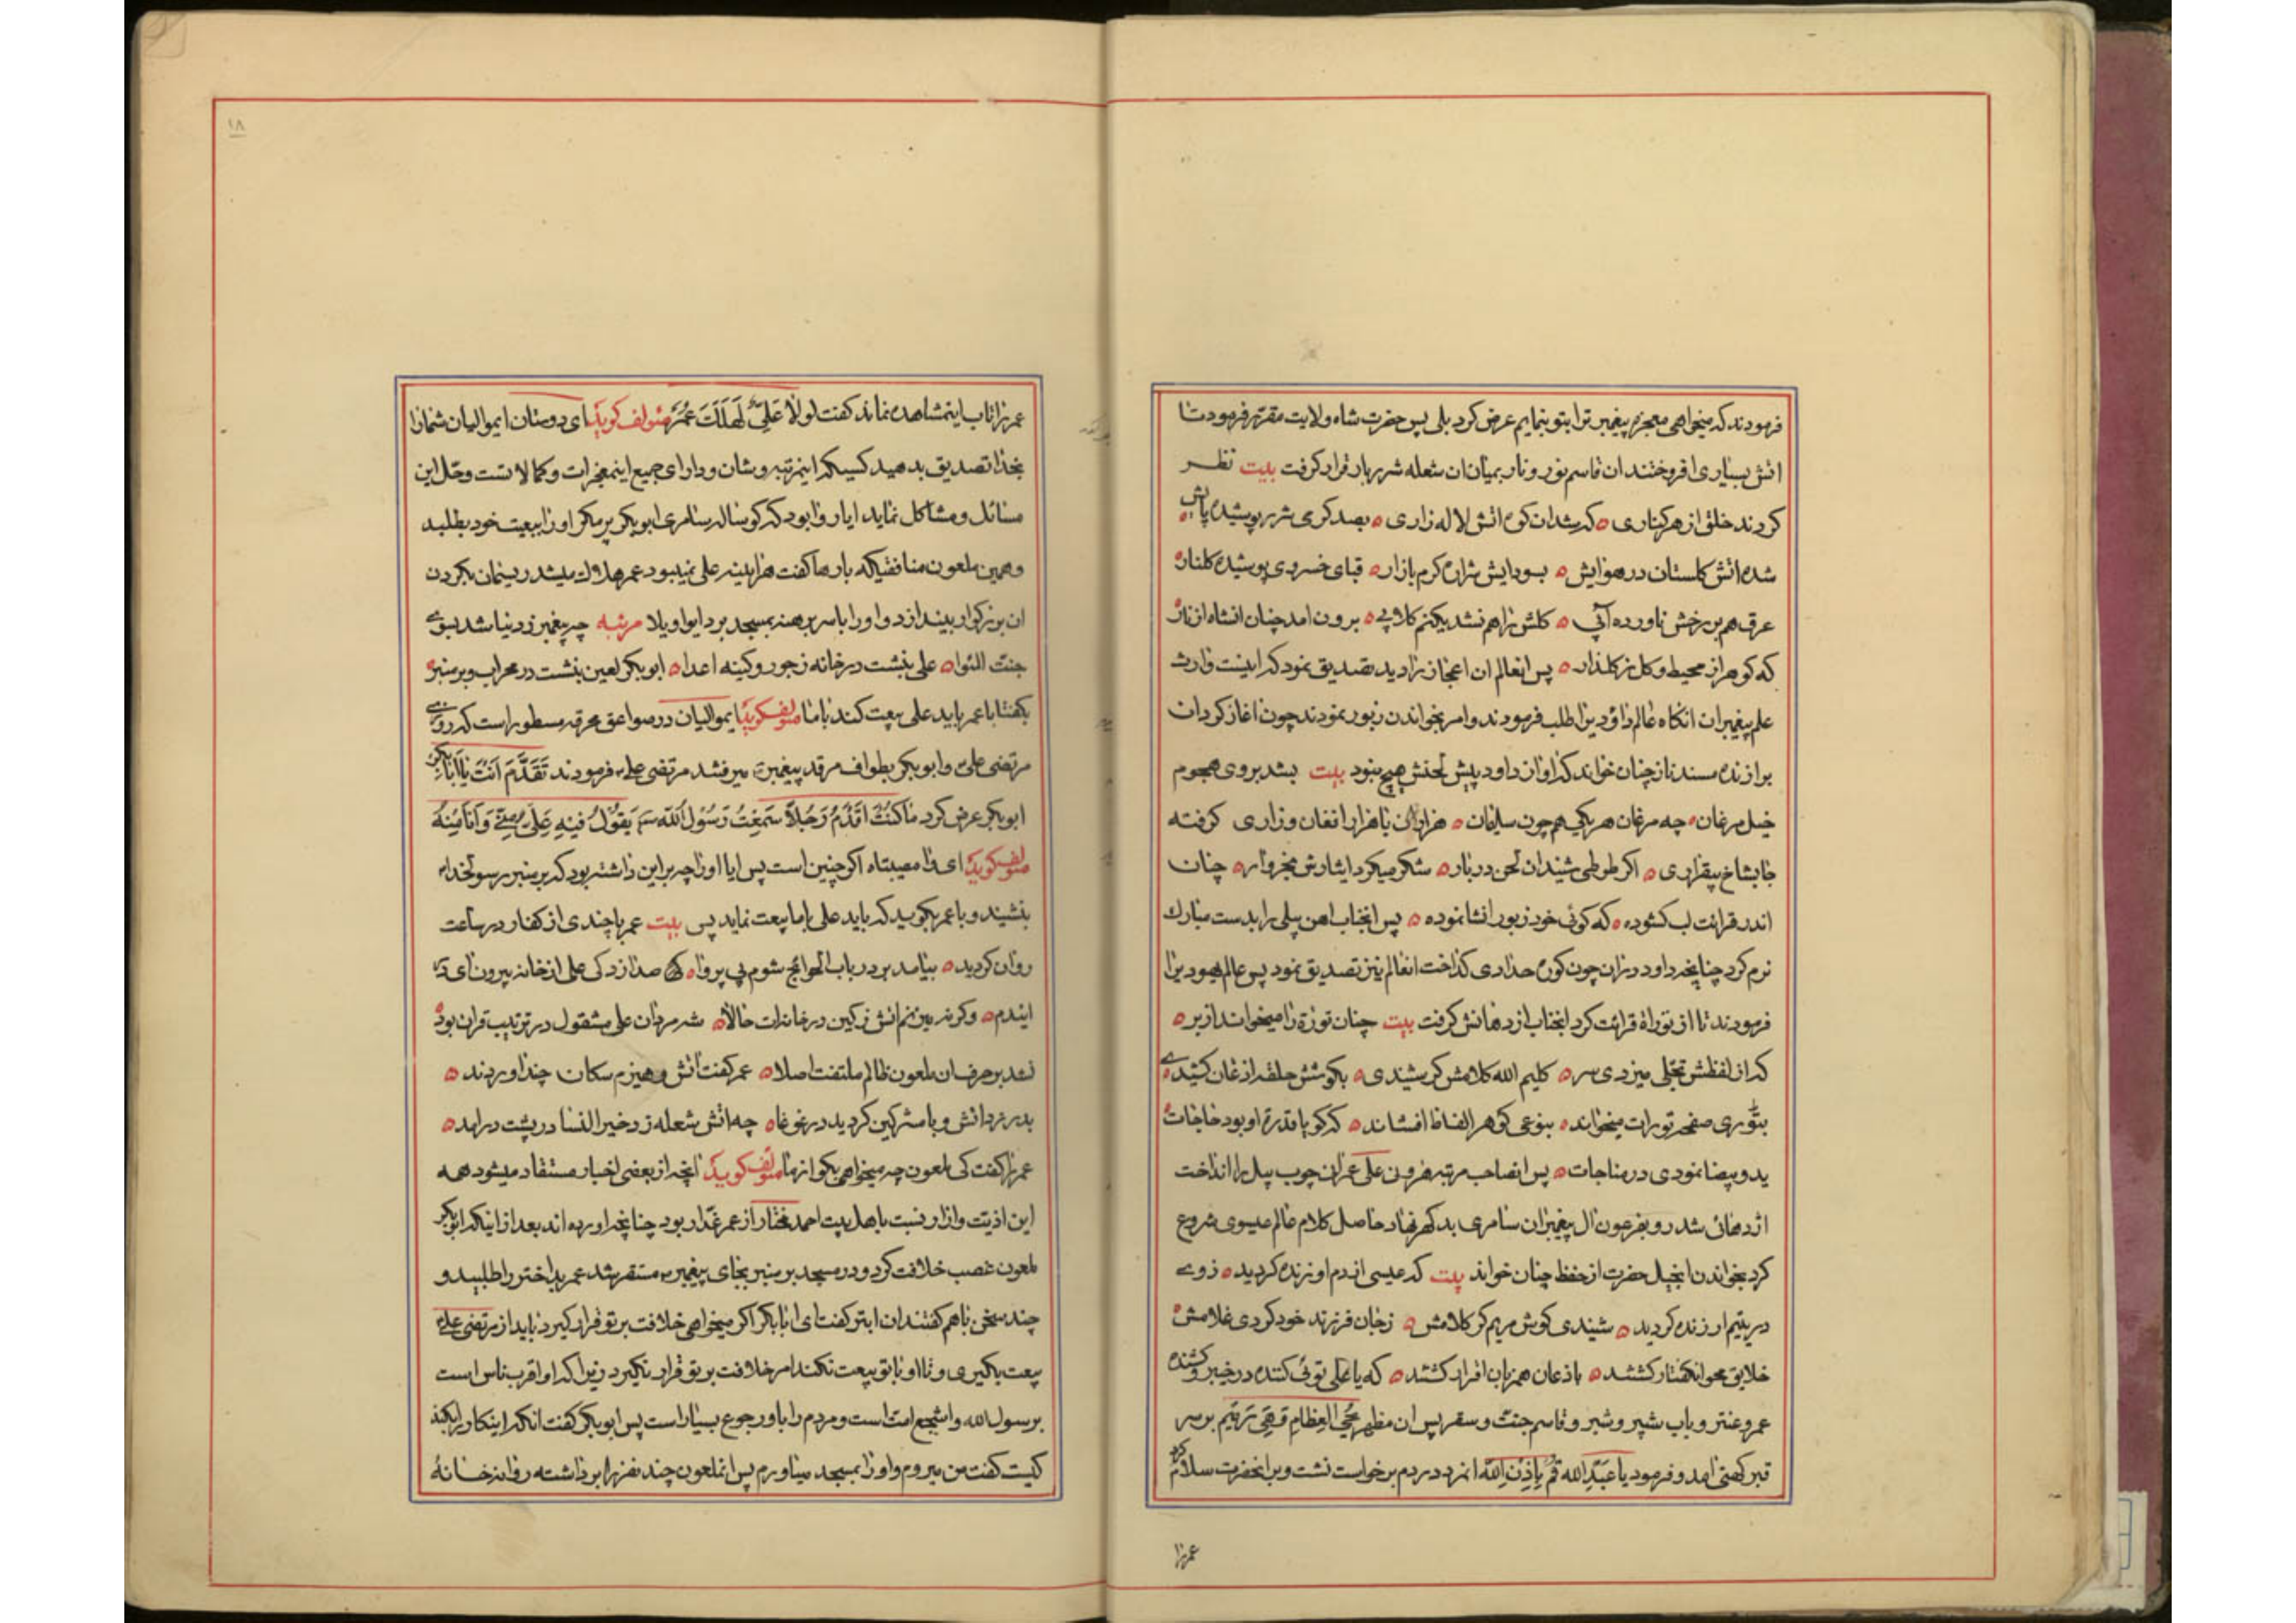 فرمودند که میخواهی معجزه پیغمبر ترا بتو بنمایم عرض کرد بلی پس حضرت شاه ولایت مقرر فرمود تا
اتش بسیاری افروختند ان قاسم نور و نار بمیان ان شعله شرربار قرار کرفت بیت نظر
کردند خلق از هر کناری که شد ان کوه اتش لاله زاری بصد کرمی شرر بوسیده پایش
شده اتش کلستان در هوایش بسودایش شراره کرم بازار قبای خسروی پوشیده کلنار
عرق هم بر رخش ناورده آبی کلش را هم نشد یکنم کلابی برون امد چنان انشاه از نار
که کوهر از محیط و کل ز کلذار پس انعالم ان اعجاز را دید تصدیق نمود که اینست وارث
علم پیغمبران انکاه عالم داودیرا طلب فرمودند و امر بخواندن زبور نمودند چون اغاز کرد ان
برازنده مسند ناز چنان خواند که اواز داود پیش لحنش هیچ بنود بیت بشد بروی هجوم
خیل مرغان چه مرغان هر یکی هم چون سلیمان هزاران با هزار افغان و زاری کرفته
جا بشاخ بیقراری اکر طوطی شنید ان لحن دربار شکر میکرد ایثارش بخروار چنان
اندر قرائت لب کشوده که کوئی خود زبور انشا نموده پس انجناب اهن بیلی را بدست مبارک
نرم کرد چنانچه داود در ان چون کوره حدادی کداخت انعالم نیز تصدیق نمود پس عالم یهودیرا
فرمودند تا از توراة قرائت کرد انجناب از دهانش کرفت بیت چنان توراة را میخواند از بر
که از لفظش تجلی میزدی سر کلیم الله کلامش کر شنیدی بکوشش حلقه اذعان کشیدی
بتوری صفحه تورات میخواند بنوعی کوهر الفاظ افشاند که کویا قدرة او بود حاجات
ید و بیضا نمودی در مناجات پس انصاحب مرتبه هرون علی عمران چوب بیل را انداخت
اژدهائی شد رو بفرعون ال پیغمبران سامری بد کهر نهاد حاصل کلام عالم عیسوی شروع
کرد بخواندن انجیل حضرت از حفظ چنان خواند بیت که عیسی از دم او زنده کردید ز وی
در یتیم ار زنده کردید شنیدی کوش مریم کر کلامش ز جان فرزند خود کردی غلامش
خلایق محو انکفتار کشتند باذعان همزبان اقرار کشتند که یا علی توئی کننده در خیبر و کشنده
عمرو عنتر و باب شپیر و شبر و قاسم جنت و سقر پس ان مظهر یُحیِ العِظامِ وَهِیَ رَمیم بر سر
قبر کهنی امد و فرمود یا عَبدَ الله قُم بِاِذنِ اللّه انمرد در دم برخواست نشست و بر انحضرت سلام کرد
عمر را
۱۸
عمر را تاب اینمشاهده نماند کفت لَولا عَلِیٌّ لَهَلَکَ عُمَرُ مؤلف کوید ای دوستان ایموالیان شما را
بخدا تصدیق بدهید کسیکه اینمرتبه و شان و دارای جمیع اینمعجزات و کمالاتست و حل این
مسائل و مشاکل نماید ایا روا بود که کوساله سامری ابوبکر پر مکر او را ببیعت خود بطلبد
و همین ملعون منافقیکه بارها کفت هر اینه علی نمیبود عمر هلاک میشد ریسمان بکردن
ان بزرکوار بیندازد و او را با سر برهنه بمسجد برد ایواویلا مرثیه چه پیغمبر ز دنیا شد بسوی
جنت المئوا علی بنشست در خانه ز جور و کینه اعدا ابوبکر لعین بنشست در محراب و بر منبر
بکفتا با عمر باید علی بیعت کند با ما مؤلف کوید ایموالیان در صواعق محرقه مسطور است که روزی
مرتضی علی و ابوبکر بطواف مرقد پیغمبر میرفتند مرتضی علی فرمودند تَقَدَّم اَنتَ یا اَبابَکر
ابوبکر عرض کرد ما کُنتُ اُقَدِّمُ رَجُلاً سَمِعتُ رَسُولَ اللّه یَقُولُ فیهِ عَلِیٌّ مِنّی وَ اَنَا مِنهُ
مؤلف کوید ای وا مصیبتاه اکر چنین است پس ایا او را چه بر این داشته بود که بر منبر رسولخدا
بنشیند و با عمر بکوید که باید علی با ما بیعت نماید پس بیت عمر با چندی از کفار در ساعت
روان کردید بیامد بر در باب الحوائج شوم بی پروا صدا زد کی علی از خانه بیرون ای در
ایندم و کرنه میزنم اتش ز کین در خانه ات حالا شه مردان علی مشقول در ترتیب قران بود
نشد بر حرف ان ملعون ظالم ملتفت اصلا عمر کفت اتش و هیزم سکان چند اوردند
بدر زد اتش و با مشرکین کردید در غوغا چه اتش شعله زد خیر النسا در پشت در امد
عمر را کفت کی ملعون چه میخواهی بکو از ما مؤلف کوید انچه از بعضی اخبار مستفاد میشود همه
این اذیت و ازار نسبت باهل بیت احمد مختار از عمر غدّار بود چنانچه اورده اند بعد از اینکه ابوبکر
ملعون غصب خلافت کرد و در مسجد بر منبر بجای پیغمبر مستقر شد عمر بداختر را طلبید و
چند سخن باهم کفتند ان ابتر کفت ای ابابکر اکر میخواهی خلافت بر تو قرار کیرد باید از مرتضی علی
بیعت بکیری و تا او با تو بیعت نکند امر خلافت بر تو قرار نکیرد زیرا که او اقرب ناس است
بر سول الله و اشجع امت است و مردم را باو رجوع بسیار است پس ابوبکر کفت انکه اینکار را بکند
کیست کفت من میروم و او را بمسجد میاورم پس انملعون چند نفر را برداشته روانه خانهٔ